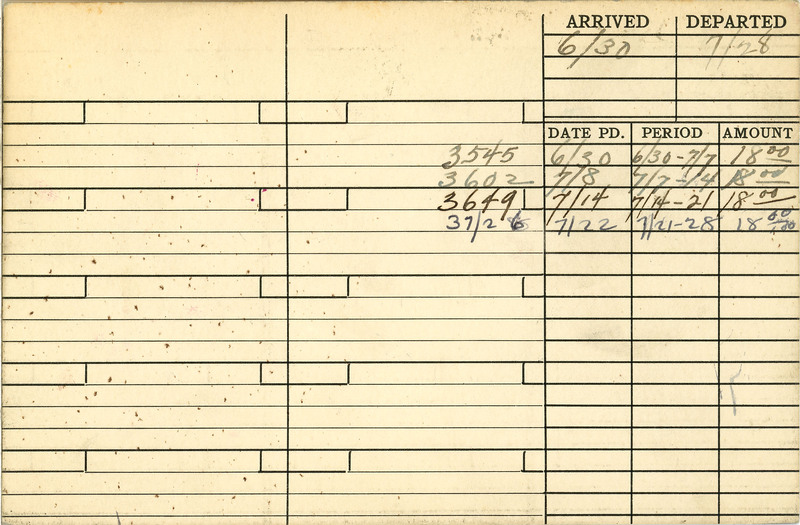 ARRIVED DEPARTED
6/30 7/28
DATE PD. PERIOD AMOUNT
3545 6/30 6/30-7/7 18 00
3602 7/8 7/7-14 18 00
3649 7/14 7/14-21 18 00
7/22 7/21-28 18 00